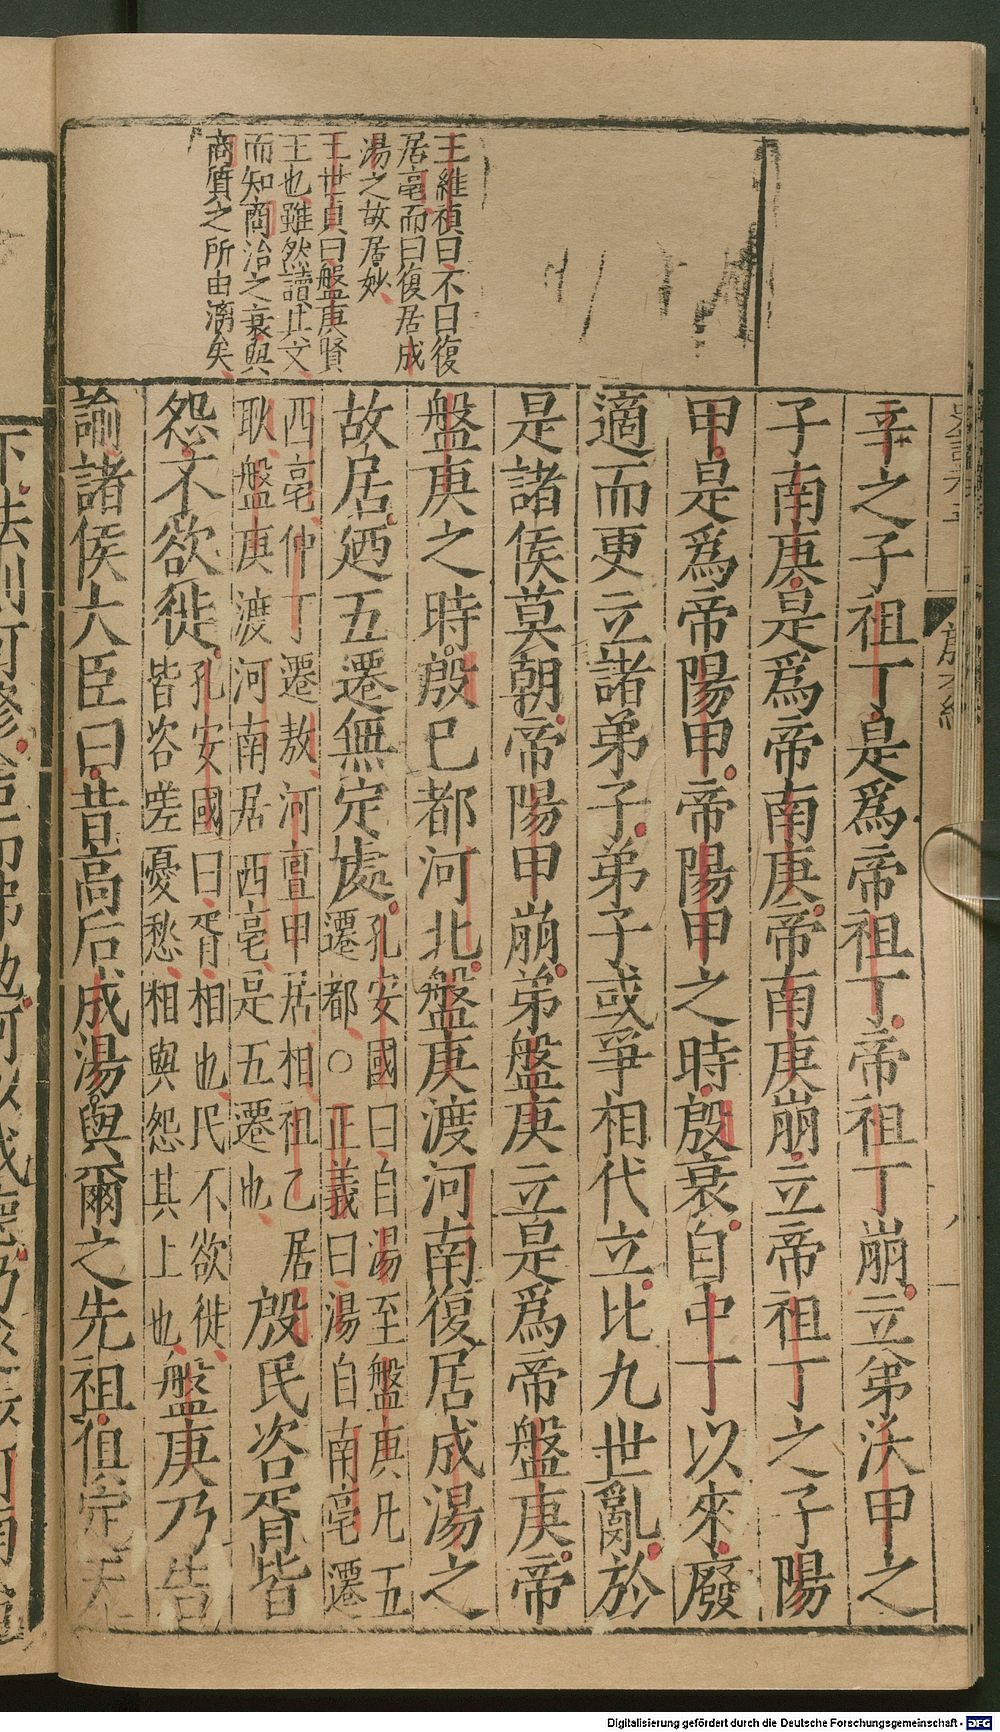 王維禎曰不曰復
居亳而曰復居成
湯之故居妙
王世貞曰盤庚賢
王也雖然讀止文
而知商治之衰與
商質之所由漓矣
辛之子祖丁是爲帝祖丁帝祖丁崩立弟沃甲之
子南庚是爲帝南庚帝南庚崩立帝祖丁之子陽
甲是爲帝陽甲帝陽甲之時殷衰自中丁以來廢
適而更立諸弟子弟子或爭相代立比九世亂於
是諸侯莫朝帝陽甲崩弟盤庚立是爲帝盤庚帝
盤庚之時殷已都河北盤庚渡河南復居成湯之
故居廼五遷無定處
孔安國曰自湯至盤庚凡五
遷都○正義曰湯自南亳遷
西亳仲丁遷敖河亶甲居相祖乙居
耿盤庚渡河南居西亳是五遷也
殷民咨胥皆
怨不欲徙
孔安國曰胥相也民不欲徙
皆咨嗟憂愁相與怨其上也
盤庚乃告
諭諸侯大臣曰昔高后成湯與爾之先祖俱定天
殷本紀
八
Digitalisierung gefördert durch die Deutsche Forschungsgemeinschaft - DFG